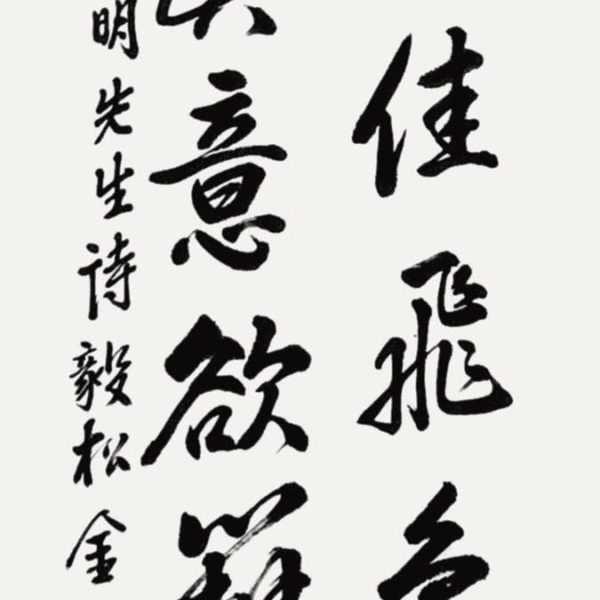 佳飛
意欲
明先生詩毅松金